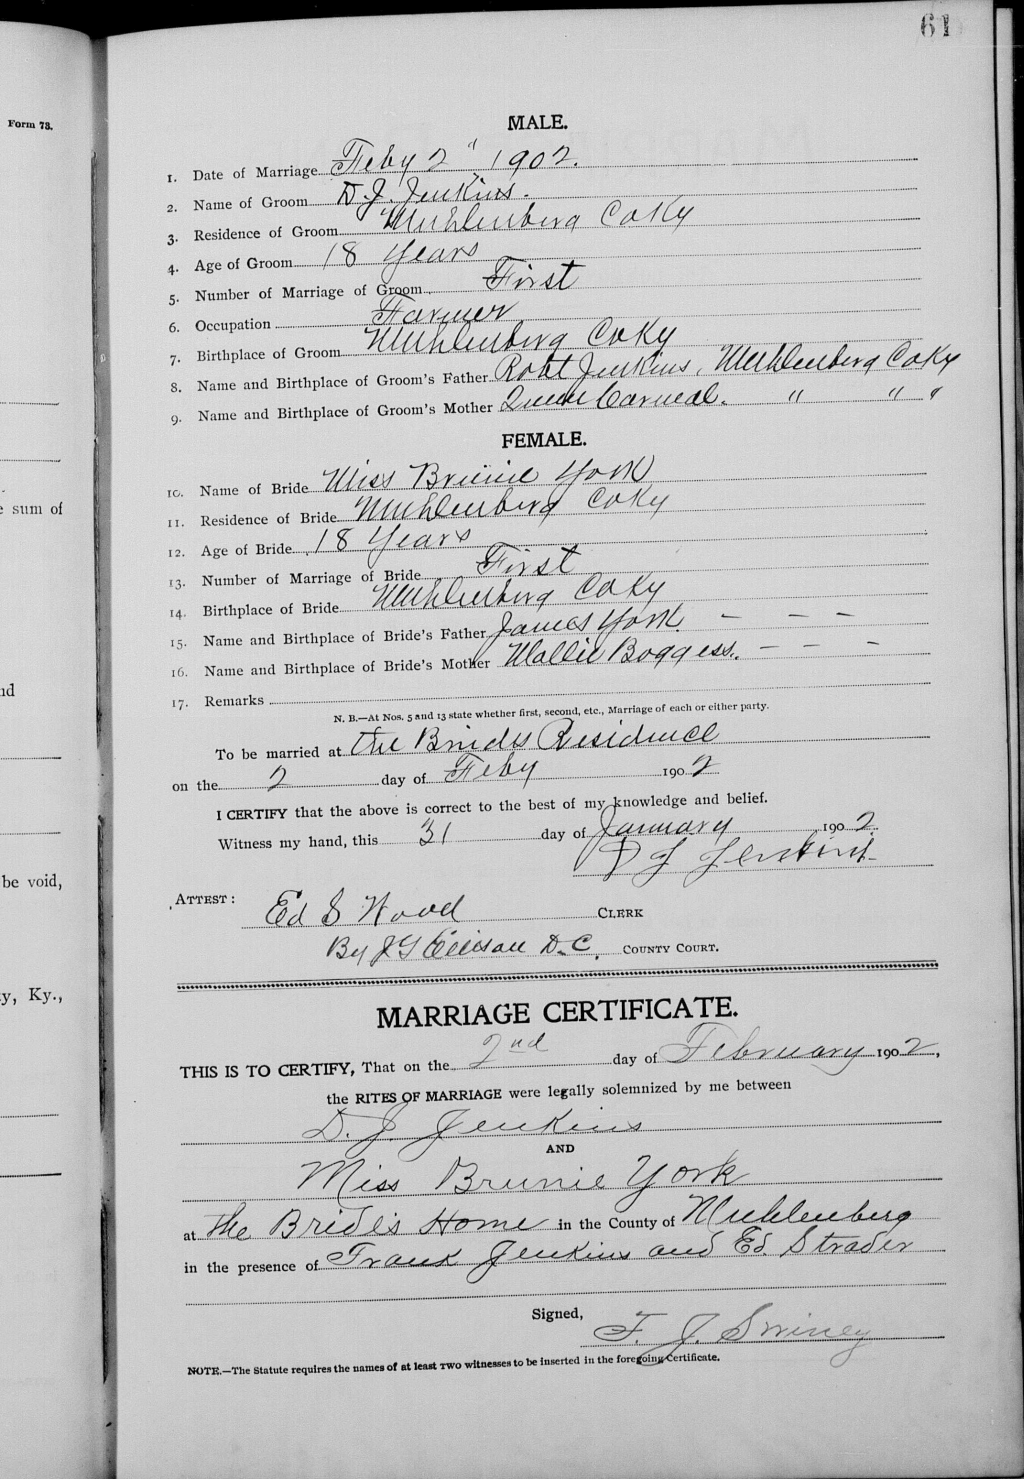 61
Form 73.
MALE.
1. Date of Marriage Feby 2" 1902.
2. Name of Groom D. J. Jenkins.
3. Residence of Groom Muhlenberg Co Ky
4. Age of Groom 18 Years
5. Number of Marriage of Groom First
6. Occupation Farmer
7. Birthplace of Groom Muhlenberg Co Ky
8. Name and Birthplace of Groom's Father Robt Jenkins, Muhlenberg Co Ky
9. Name and Birthplace of Groom's Mother Carneal. " " "
FEMALE.
10. Name of Bride Miss York
11. Residence of Bride Muhlenberg Co Ky
12. Age of Bride 18 Years
13. Number of Marriage of Bride First
14. Birthplace of Bride Muhlenberg Co Ky
15. Name and Birthplace of Bride's Father James York. — — —
16. Name and Birthplace of Bride's Mother Mollie Boggess. — — —
17. Remarks
N. B.—At Nos. 5 and 13 state whether first, second, etc., Marriage of each or either party.
To be married at the Brides Residence
on the 2 day of Feby 1902
I CERTIFY that the above is correct to the best of my knowledge and belief.
Witness my hand, this 31 day of January 1902.
D J Jenkins
ATTEST: Ed S Wood CLERK
By J G Ellison D.C. COUNTY COURT.
MARRIAGE CERTIFICATE.
THIS IS TO CERTIFY, That on the 2nd day of February 1902,
the RITES OF MARRIAGE were legally solemnized by me between
D. J. Jenkins
AND
Miss Brunie York
at The Bride's Home in the County of Muhlenberg
in the presence of Frank Jenkins and Ed. Strader
Signed,
F. J. Swiney
NOTE.—The Statute requires the names of at least TWO witnesses to be inserted in the foregoing Certificate.
e sum of
nd
be void,
y, Ky.,